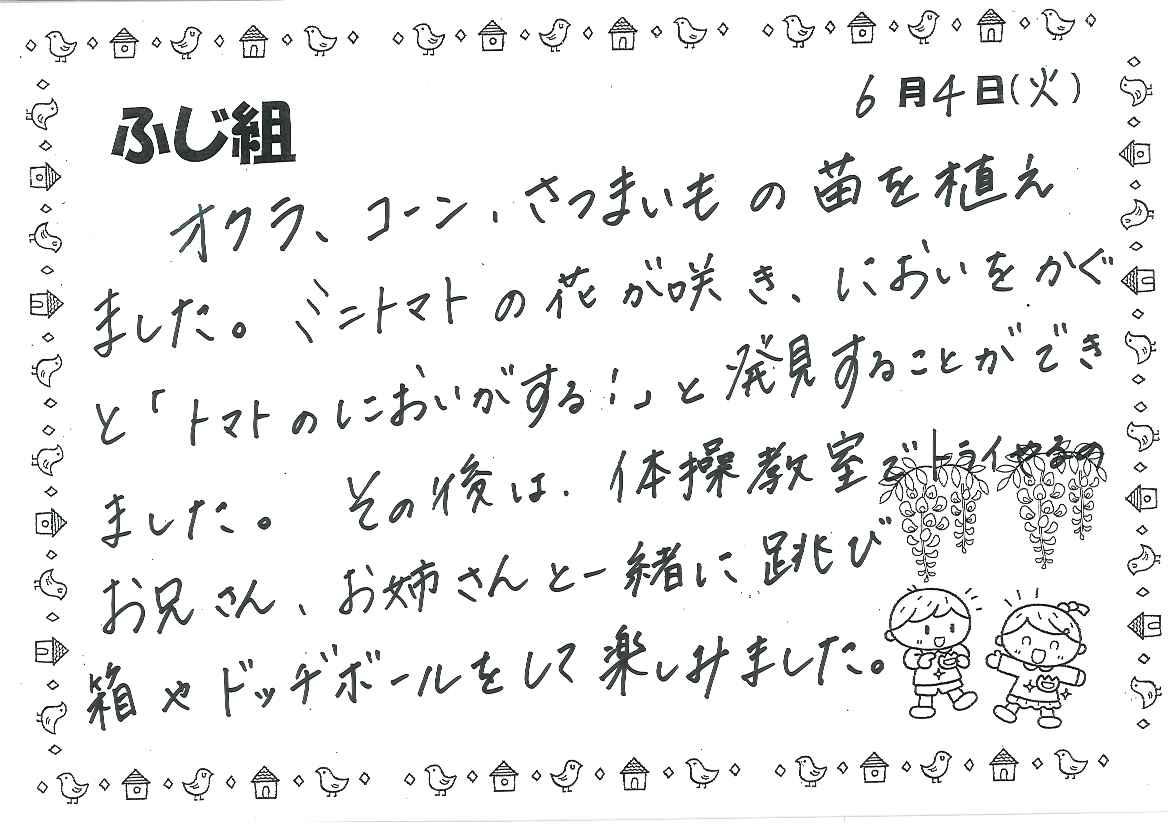 6月4日(火)
ふじ組
オクラ、コーン、さつまいもの苗を植え
ました。ミニトマトの花が咲き、においをかぐ
と「トマトのにおいがする!」と発見することができ
ました。その後は、体操教室でトライやるの
お兄さん、お姉さんと一緒に跳び
箱やドッヂボールをして楽しみました。